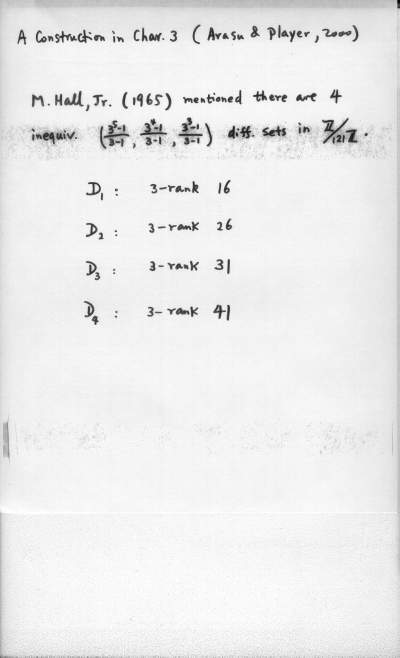 A Construction in Char. 3 (Arasu & Player, 2000)
M. Hall, Jr. (1965) mentioned there are 4
inequiv. (3^5-1/3-1, 3^4-1/3-1, 3^3-1/3-1) diff. sets in Z/121Z.
D₁ : 3-rank 16
D₂ : 3-rank 26
D₃ : 3-rank 31
D₄ : 3-rank 41